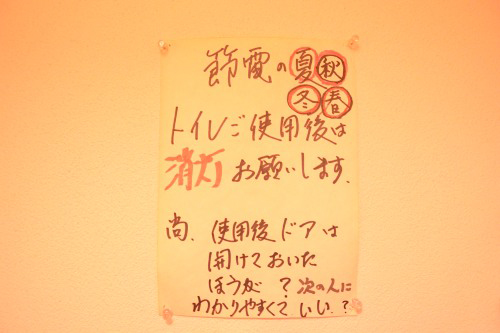 節電の夏秋
冬春
トイレご使用後は
消灯お願いします.
尚. 使用後ドアは
開けておいた
ほうが?次の人に
わかりやすくていい.?